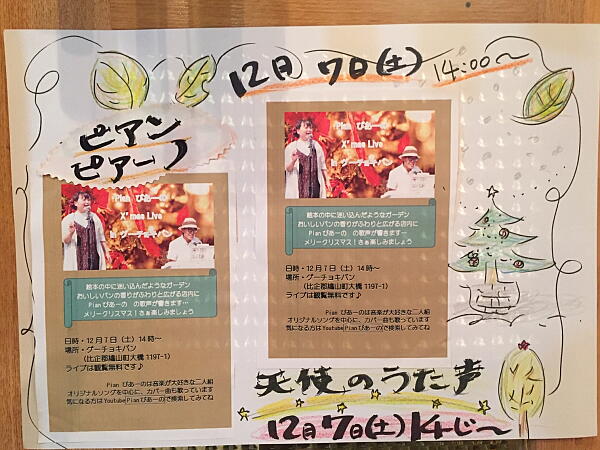 12月7日(土) 14:00～
ピアン
ピアーノ
Pian ぴあーの
X'mas Live
グーチョキパン
絵本の中に迷い込んだようなガーデン
おいしいパンの香りがふわりと広がる店内に
Pian ぴあーの の歌声が響きます…
メリークリスマス！さぁ楽しみましょう
日時・12月7日（土）14時～
場所・グーチョキパン
（比企郡鳩山町大橋 1197-1）
ライブは観覧無料です♪
Pian ぴあーのは音楽が大好きな二人組
オリジナルソングを中心に、カバー曲も歌っています
気になる方はYoutube Pianぴあーの で検索してみてね
Pian ぴあーの
X'mas Live
in グーチョキパン
絵本の中に迷い込んだようなガーデン
おいしいパンの香りがふわりと広がる店内に
Pian ぴあーの の歌声が響きます…
メリークリスマス！さぁ楽しみましょう
日時・12月7日（土）14時～
場所・グーチョキパン
（比企郡鳩山町大橋 1197-1）
ライブは観覧無料です♪
Pian ぴあーのは音楽が大好きな二人組
オリジナルソングを中心に、カバー曲も歌っています
気になる方はYoutube Pianぴあーの で検索してみてね
天使のうた声
12月7日(土) 14じ～